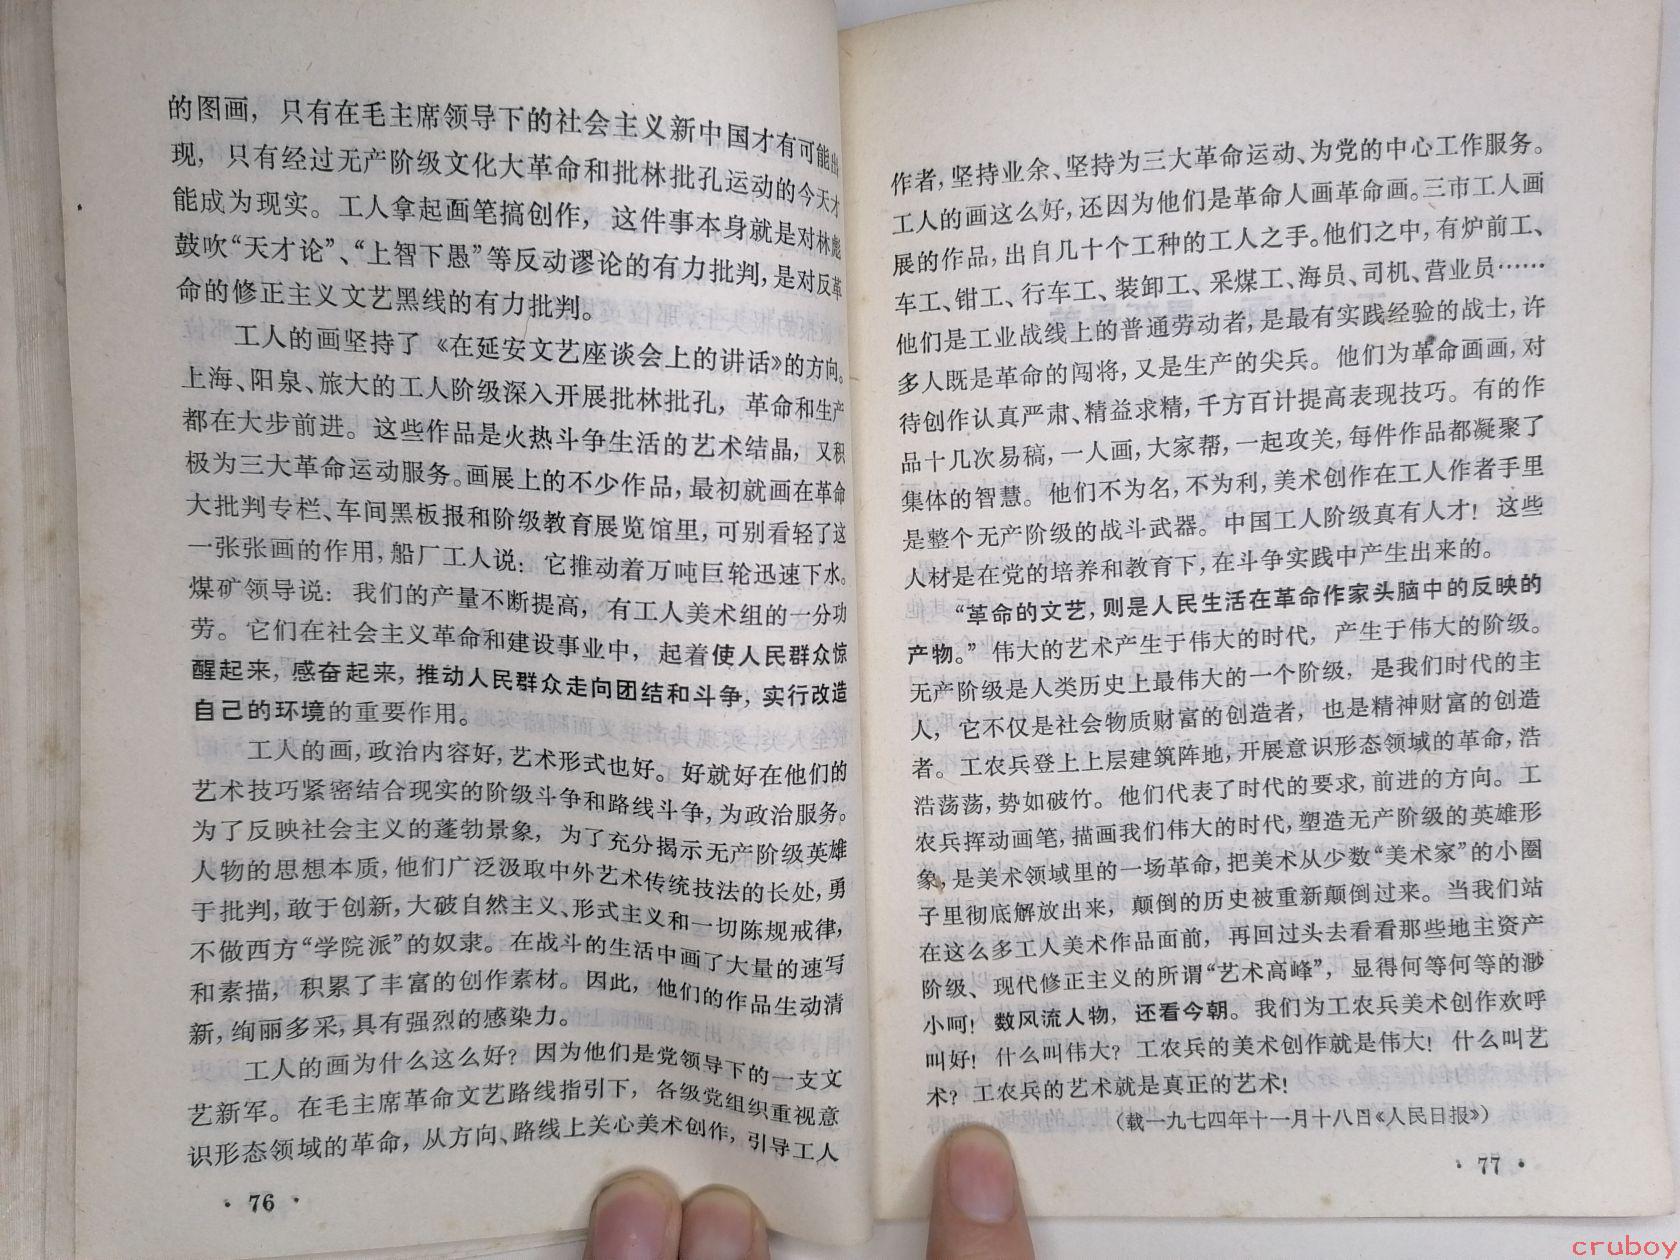 的图画，只有在毛主席领导下的社会主义新中国才有可能出
现，只有经过无产阶级文化大革命和批林批孔运动的今天才
能成为现实。工人拿起画笔搞创作，这件事本身就是对林彪
鼓吹“天才论”、“上智下愚”等反动谬论的有力批判，是对反革
命的修正主义文艺黑线的有力批判。
工人的画坚持了《在延安文艺座谈会上的讲话》的方向。
上海、阳泉、旅大的工人阶级深入开展批林批孔，革命和生产
都在大步前进。这些作品是火热斗争生活的艺术结晶，又积
极为三大革命运动服务。画展上的不少作品，最初就画在革命
大批判专栏、车间黑板报和阶级教育展览馆里，可别看轻了这
一张张画的作用，船厂工人说：它推动着万吨巨轮迅速下水。
煤矿领导说：我们的产量不断提高，有工人美术组的一分功
劳。它们在社会主义革命和建设事业中，起着使人民群众惊
醒起来，感奋起来，推动人民群众走向团结和斗争，实行改造
自己的环境的重要作用。
工人的画，政治内容好，艺术形式也好。好就好在他们的
艺术技巧紧密结合现实的阶级斗争和路线斗争，为政治服务。
为了反映社会主义的蓬勃景象，为了充分揭示无产阶级英雄
人物的思想本质，他们广泛汲取中外艺术传统技法的长处，勇
于批判，敢于创新，大破自然主义、形式主义和一切陈规戒律，
不做西方“学院派”的奴隶。在战斗的生活中画了大量的速写
和素描，积累了丰富的创作素材。因此，他们的作品生动清
新，绚丽多采，具有强烈的感染力。
工人的画为什么这么好？因为他们是党领导下的一支文
艺新军。在毛主席革命文艺路线指引下，各级党组织重视意
识形态领域的革命，从方向、路线上关心美术创作，引导工人
· 76 ·
作者，坚持业余、坚持为三大革命运动、为党的中心工作服务。
工人的画这么好，还因为他们是革命人画革命画。三市工人画
展的作品，出自几十个工种的工人之手。他们之中，有炉前工、
车工、钳工、行车工、装卸工、采煤工、海员、司机、营业员……
他们是工业战线上的普通劳动者，是最有实践经验的战士，许
多人既是革命的闯将，又是生产的尖兵。他们为革命画画，对
待创作认真严肃、精益求精，千方百计提高表现技巧。有的作
品十几次易稿，一人画，大家帮，一起攻关，每件作品都凝聚了
集体的智慧。他们不为名，不为利，美术创作在工人作者手里
是整个无产阶级的战斗武器。中国工人阶级真有人才！这些
人材是在党的培养和教育下，在斗争实践中产生出来的。
“革命的文艺，则是人民生活在革命作家头脑中的反映的
产物。”伟大的艺术产生于伟大的时代，产生于伟大的阶级。
无产阶级是人类历史上最伟大的一个阶级，是我们时代的主
人，它不仅是社会物质财富的创造者，也是精神财富的创造
者。工农兵登上上层建筑阵地，开展意识形态领域的革命，浩
浩荡荡，势如破竹。他们代表了时代的要求，前进的方向。工
农兵挥动画笔，描画我们伟大的时代，塑造无产阶级的英雄形
象，是美术领域里的一场革命，把美术从少数“美术家”的小圈
子里彻底解放出来，颠倒的历史被重新颠倒过来。当我们站
在这么多工人美术作品面前，再回过头去看看那些地主资产
阶级、现代修正主义的所谓“艺术高峰”，显得何等何等的渺
小呵！数风流人物，还看今朝。我们为工农兵美术创作欢呼
叫好！什么叫伟大？工农兵的美术创作就是伟大！什么叫艺
术？工农兵的艺术就是真正的艺术！
（载一九七四年十一月十八日《人民日报》）
· 77 ·
cruboy